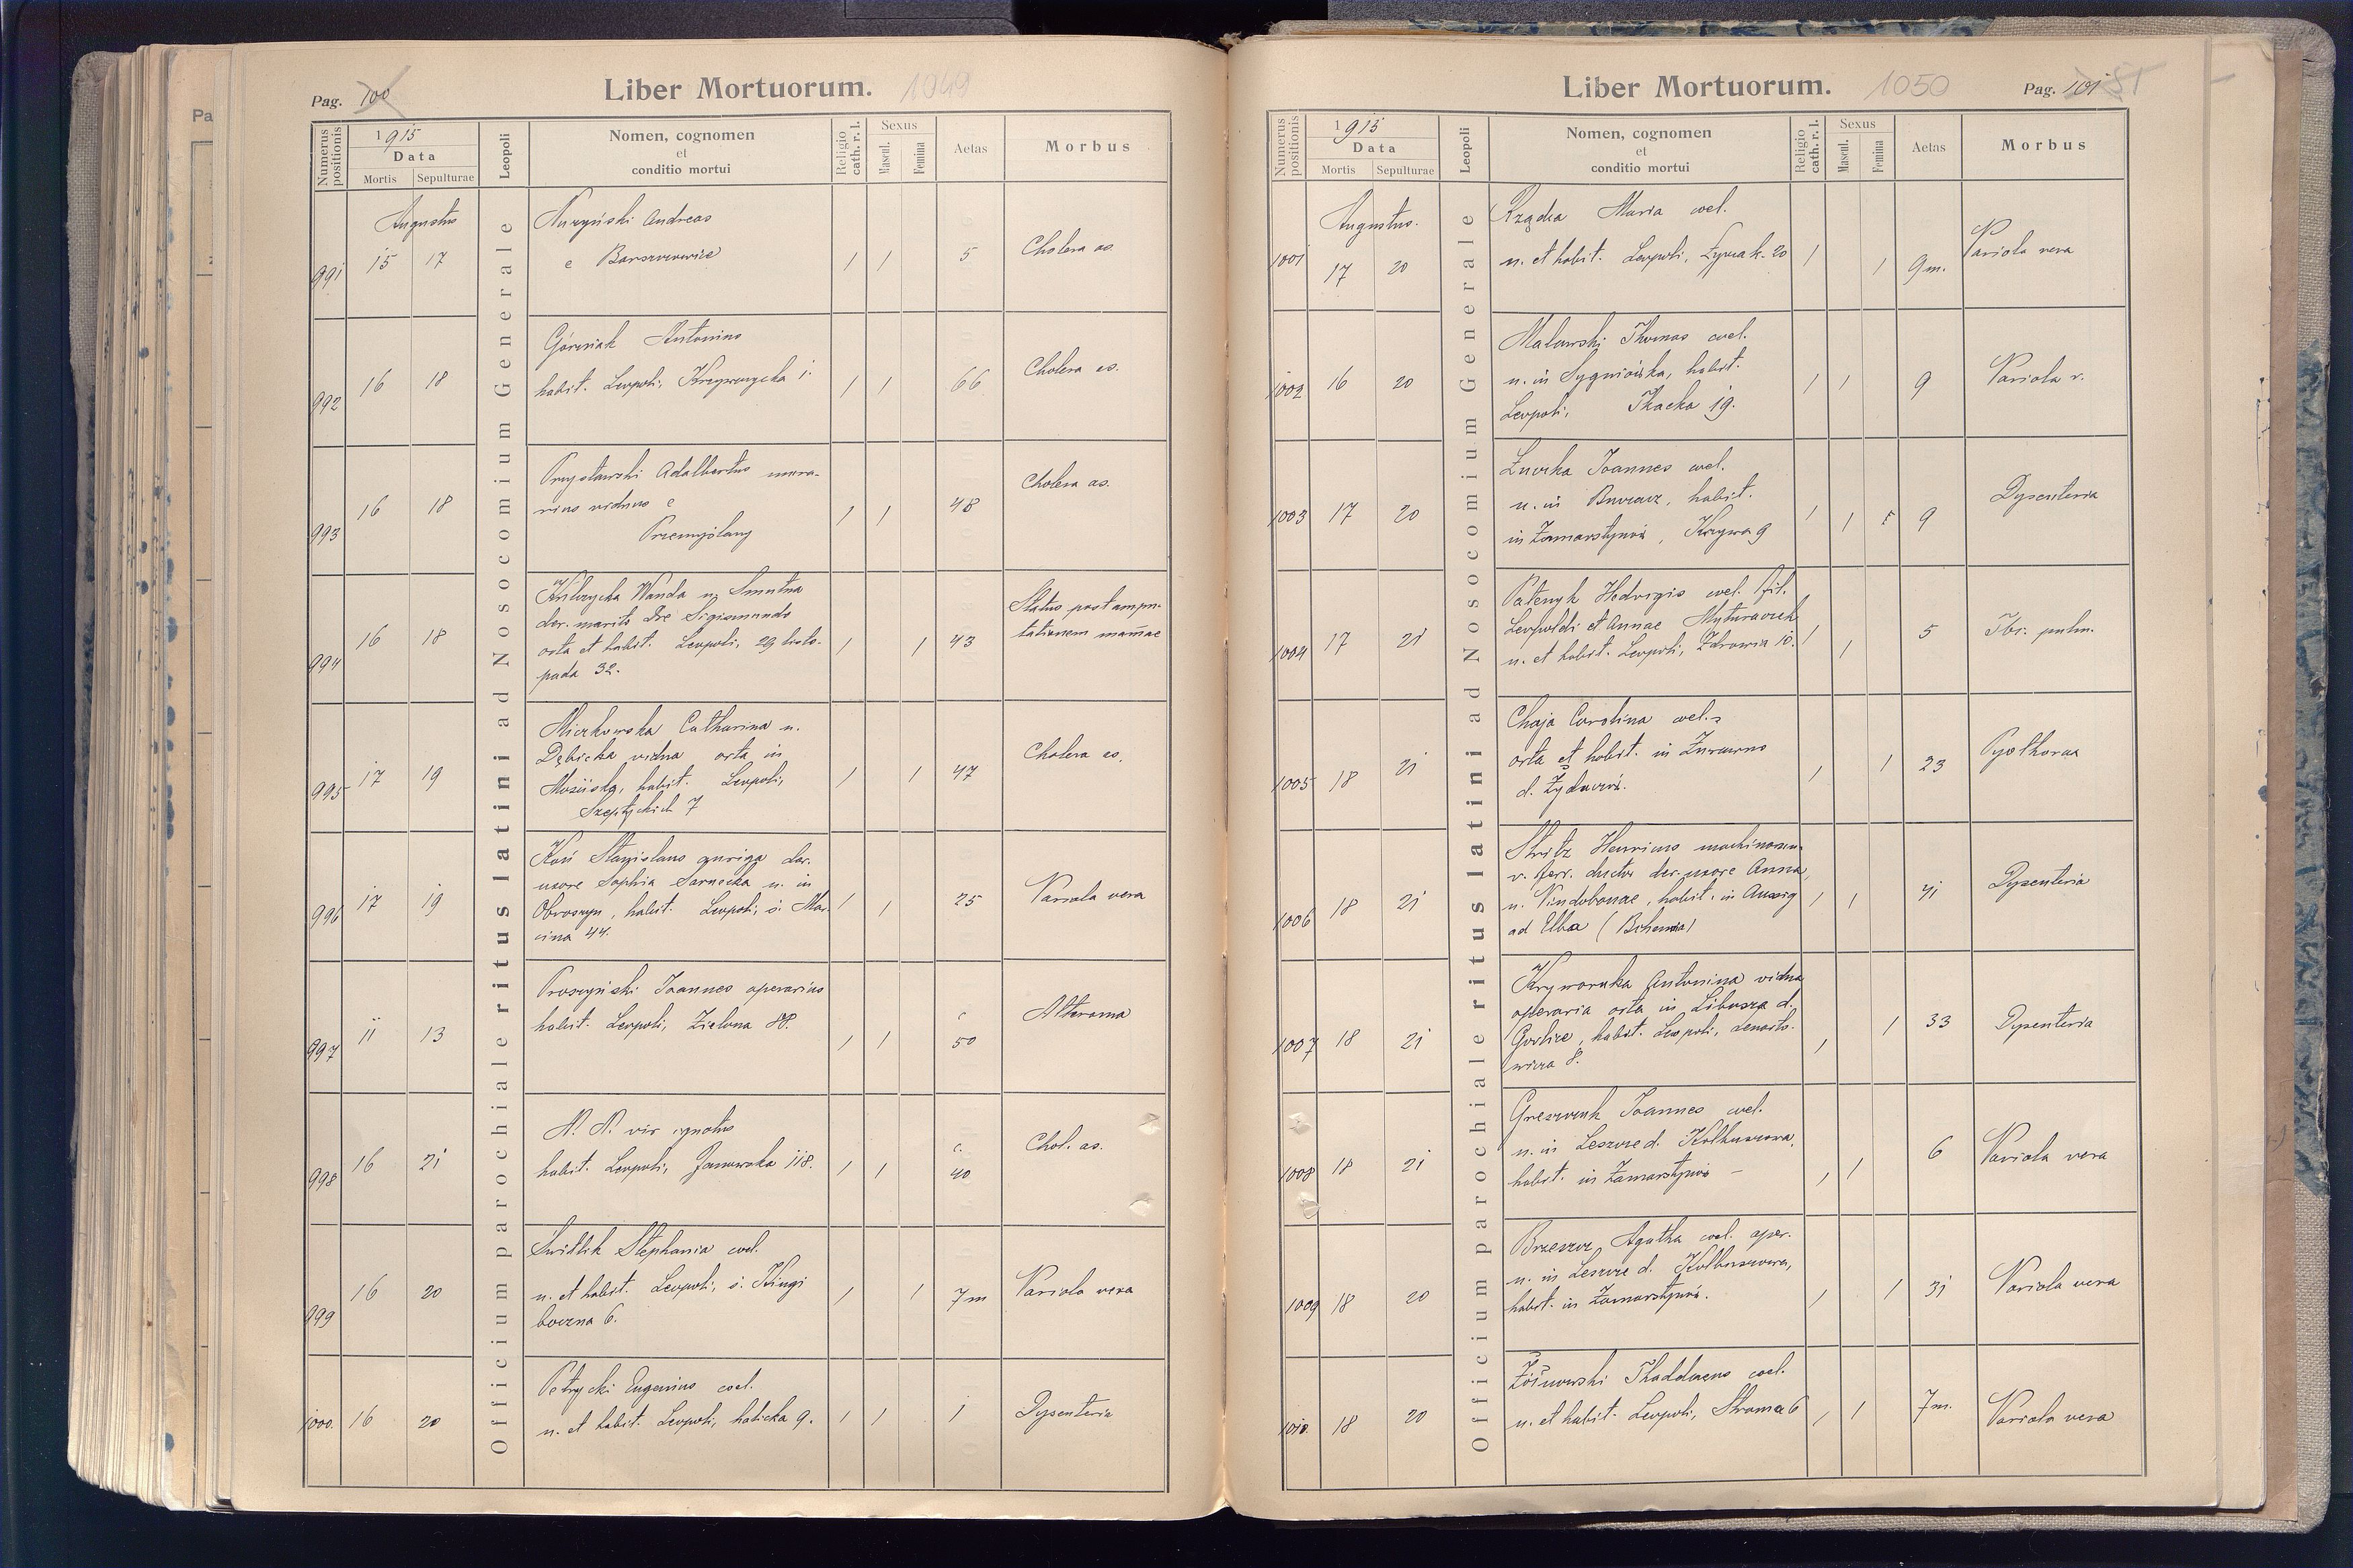 Pag. 100
Liber Mortuorum. 1049
Numerus positionis
1915
Data
Mortis Sepulturae
Leopoli
Nomen, cognomen
et
conditio mortui
Religio cath. r. l.
Sexus
Mascul. Femina
Aetas
Morbus
Officium parochiale ritus latini ad Nosocomium Generale
Augustus
991 15 17
Andreas
e
1 1 5 Cholera as.
992 16 18
Górniak Antonius
habit. Leopoli, Krzywczycka 1.
1 1 66 Cholera as.
993 16 18
Adalbertus mura-
rius viduus e
Przemyślany
1 1 48 Cholera as.
994 16 18
Wanda n. Smutna
der. marito Dre Sigismundo
orta et habit. Leopoli, 29 listo-
pada 32.
1 1 43 Status post ampu-
tationem mam̄ae
995 17 19
Catharina n.
Dębicka vidua orta in
Mościska, habit. Leopoli,
Szeptyckich 7
1 1 47 Cholera as.
996 17 19
Koń Stanislaus auriga der.
uxore Sophia Sarnecka n. in
Obroszyn, habit. Leopoli, ś. Mar-
cina 44.
1 1 25 Variola vera
997 11 13
Proszyński Joannes operarius
habit. Leopoli, Zielona 88.
1 1 c 50 Atheroma
998 16 21
N. N. vir ignotus
habit. Leopoli, Janowska 118.
1 1 c. 40 Chol. as.
999 16 20
Świtlik Stephania coel.
n. et habit. Leopoli, ś. Kingi
boczna 6.
1 1 7m Variola vera
1000. 16 20
Petrycki Eugenius coel.
n. et habit. Leopoli, halicka 9.
1 1 1 Dysenteria
Liber Mortuorum. 1050
Pag. 101 51
Numerus positionis
1915
Data
Mortis Sepulturae
Leopoli
Nomen, cognomen
et
conditio mortui
Religio cath. r. l.
Sexus
Mascul. Femina
Aetas
Morbus
Officium parochiale ritus latini ad Nosocomium Generale
Augustus.
1001 17 20
Maria coel.
n. et habit. Leopoli, 20
1 1 9m. Variola vera
1002 16 20
Malawski Thomas coel.
n. in Sygniówka, habit.
Leopoli, Tkacka 19.
1 1 9 Variola v.
1003 17 20
Joannes coel.
n. in habit.
in Zamarstynów, Krzywa 9
1 1 9 Dysenteria
1004 17 21
Hedvigis coel. fil.
Leopoldi et Annae
n. et habit. Leopoli, Zdrowia 10.
1 1 5 Tbc. pulm.
1005 18 21
Chaja Carolina coel.
orta et habit. in Żurawno
d. Żydaczów.
1 1 23 Pyothorax
1006 18 21
Stritz Henricus machinarum
v. ferr. ductor der. uxore Anna,
n. Vindobonae, habit. in Aussig
ad Elba (Bohemia)
1 1 41 Dysenteria
1007 18 21
Kryworuka Antonina vidua
operaria orta in Libusza d.
Gorlice, habit. Leopoli, Lenarto-
wicza 8.
1 1 33 Dysenteria
1008 18 21
Joannes coel.
n. in Leszcze d. Kolbuszowa,
habit. in Zamarstynów –
1 1 6 Variola vera
1009 18 20
Agatha coel. oper.
n. in Leszcze d. Kolbuszowa,
habit. in Zamarstynów.
1 1 31 Variola vera
1010. 18 20
Thaddaeus coel.
n. et habit. Leopoli, Stroma 6
1 1 7m. Variola vera